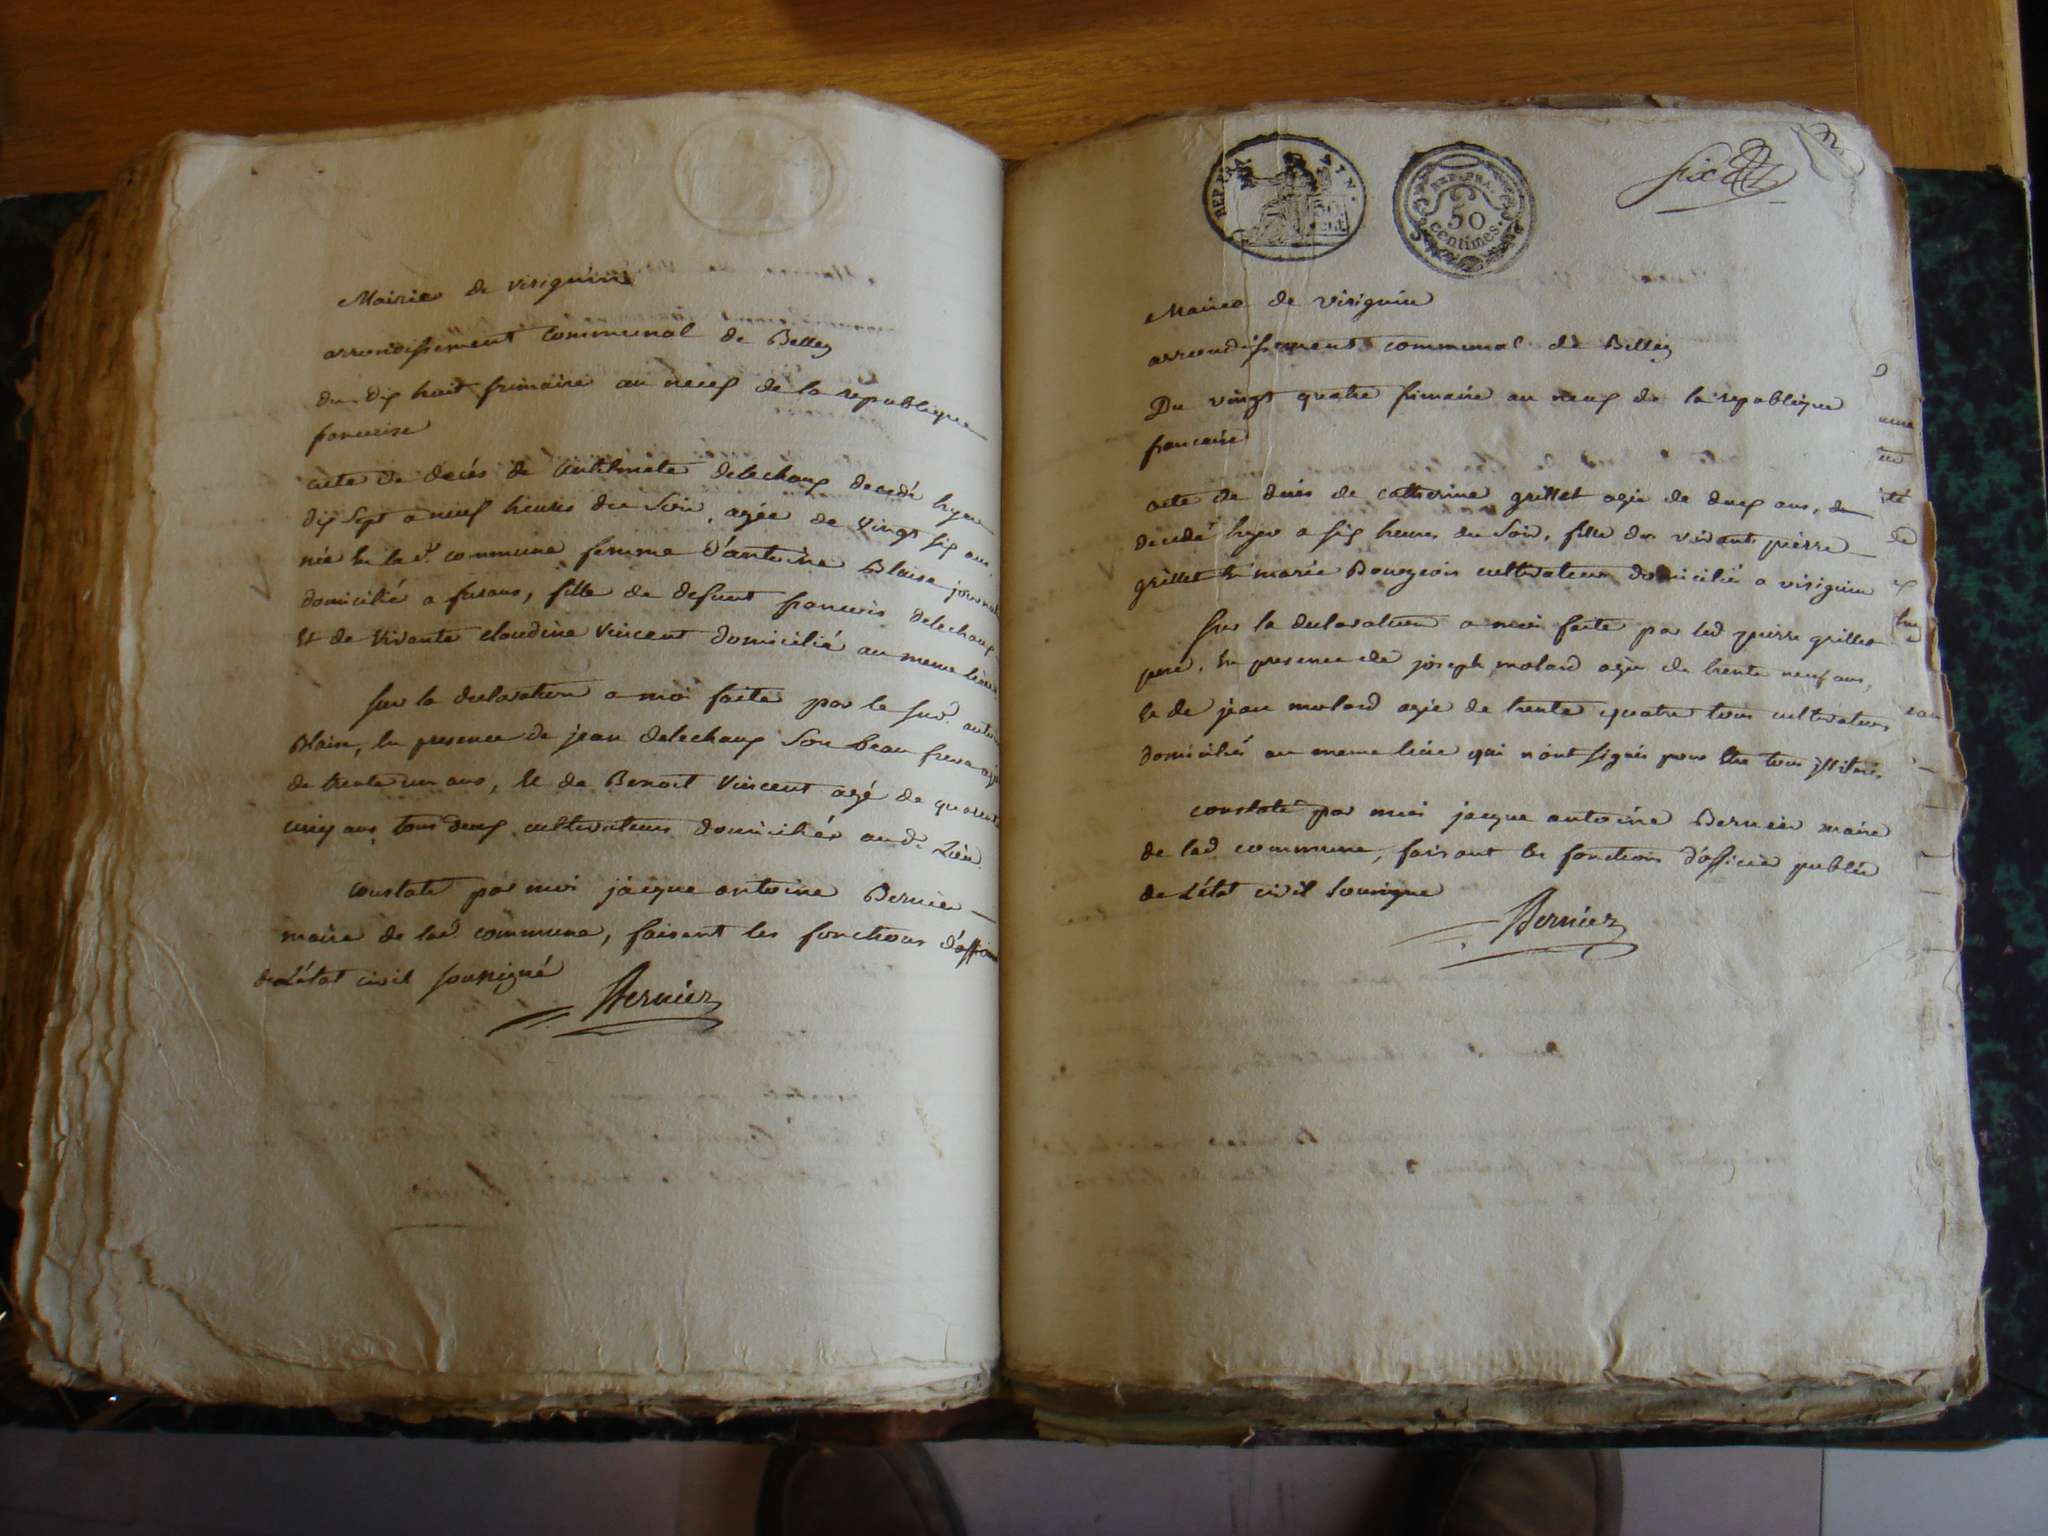 Mairie de virignin
arrondissement communal de Belley
du dix huit frimaire an neuf de la republique
francaise
acte de decés de anthelmete delechaux decedé hyer
dix sept a neuf heures du Soir, agée de vingt six ans,
née en lad. commune femme d'antoine Blaise journal
domicilié a furans, fille de defunt francois delechaux
Et de vivante claudine vincent domicilié au meme lieu
Sur la declaration a moi faite par le Sud. antoi
Blaise, En presence de jean delechaux Son beau frere agé
de trente un ans, Et de Benoit Vincent agé de quarente
cinq ans tous deux cultivateurs domiciliés aud. Lieu
constaté par moi jacque antoine Bernier
maire de lad. commune, faisant les fonctions d'officier
de L'état civil soussigné
Bernier
REP. FRA
50
centimes
six
Mairie de virignin
arrondissement communal de Belley
Du vingt quatre frimaire an neuf de la republique
francaise
acte de decés de catherine grillet agée de deux ans,
decedé hyer a six heures du Soir, fille de vivant pierre
grillet Et marie Bourgeois cultivateurs domicilié a virignin
Sur la declaration a moi faite par led pierre grillet
pere, En presence de joseph molard agé de trente neuf ans,
Et de jean molard agé de trente quatre tous cultivateurs
domiciliés au meme lieu qui n'ont signés pour Etre tous illitérés.
constaté par moi jacque antoine Bernier maire
de lad commune, faisant les fonctions d'officier public
de L'état civil sousigne
Bernier